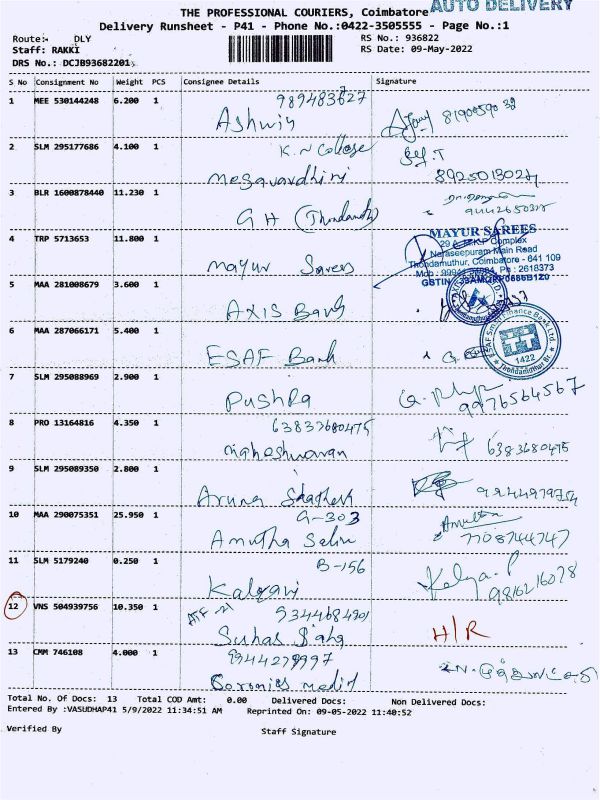 AUTO DELIVERY
THE PROFESSIONAL COURIERS, Coimbatore
Delivery Runsheet - P41 - Phone No.:0422-3505555 - Page No.:1
Route:- DLY
RS No.: 936822
Staff: RAKKI
RS Date: 09-May-2022
DRS No.: DCJB93682201
S No Consignment No Weight PCS Consignee Details Signature
1 MEE 530144248 6.200 1 Ashwin 8190059032
2 SLM 295177686 4.100 1 K.N College
Megavardhini 8925013027
3 BLR 1600878440 11.230 1 GH (Thondamuthr)
4 TRP 5713653 11.800 1 Mayur Sarees
MAYUR SAREES
Naraseepuram Main Road
Thondamuthur, Coimbatore - 641 109
5 MAA 281008679 3.600 1 AXIS Bank
6 MAA 287066171 5.400 1 ESAF Bank
ESAF Small Finance Bank Ltd.
1422
Thondamuthur Br.
7 SLM 295088969 2.900 1 Pushpa
9976564567
8 PRO 13164816 4.350 1 Maheshwaran 6383680475
9 SLM 295089350 2.800 1 Aruna
10 MAA 290075351 25.950 1 G-303
Amutha Selvi Amutha
7708744747
11 SLM 5179240 0.250 1 B-156
Kalyani Kalya.P
9816216078
12 VNS 504939756 10.350 1 9344684901
Suhas Saha H/R
13 CMM 746108 4.000 1 9944279997
Total No. Of Docs: 13 Total COD Amt: 0.00 Delivered Docs: Non Delivered Docs:
Entered By :VASUDHAP41 5/9/2022 11:34:51 AM Reprinted On: 09-05-2022 11:40:52
Verified By Staff Signature